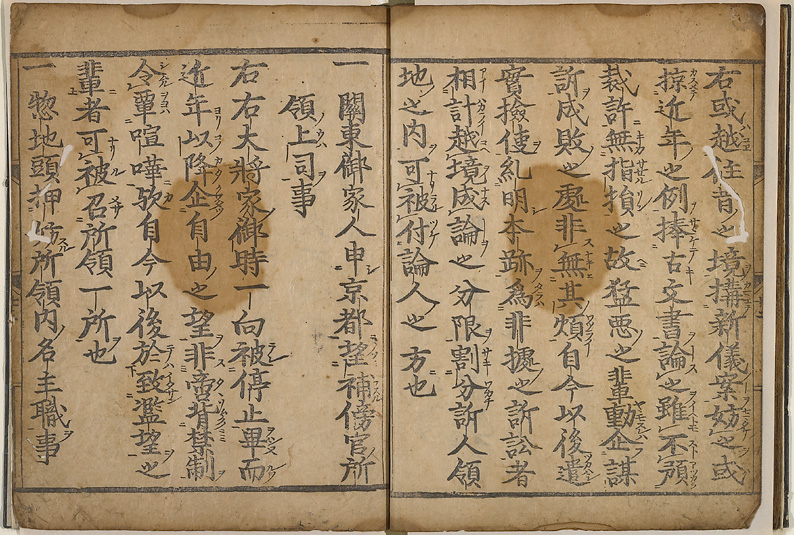 右或越往昔之境搆新儀案妨之或
掠近年之例捧古文書論之雖不預
裁許無指損之故猛悪之輩動企謀
訴成敗之處非無其煩自今以後遣
實撿使糺明本跡為非據之訴訟者
相計越境成論之分限割分訴人領
地之内可被付論人之方也
一 關東御家人申京都望補傍官所
領上司事
右右大將家御時一向被停止畢而
近年以降企自由之望非啻背禁制
令覃喧嘩歟自今以後於致濫望之
輩者可被召所領一所也
一 惣地頭押妨所領内名主職事